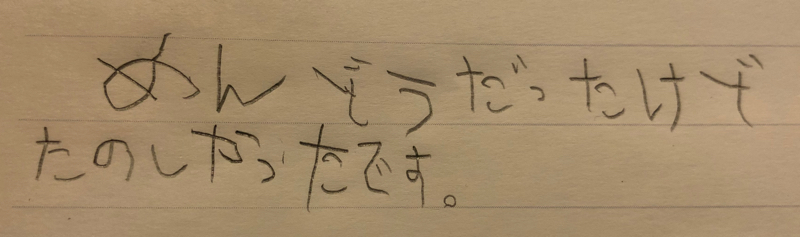 めんどうだったけど
たのしかったです。